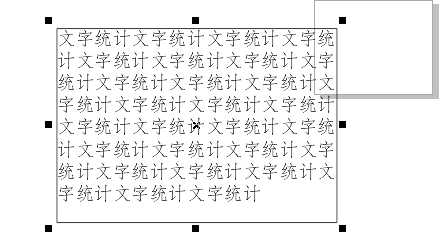 文字统计文字统计文字统计文字统
计文字统计文字统计文字统计文字
统计文字统计文字统计文字统计文
字统计文字统计文字统计文字统计
文字统计文字统计文字统计文字统
计文字统计文字统计文字统计文字
统计文字统计文字统计文字统计文
字统计文字统计文字统计